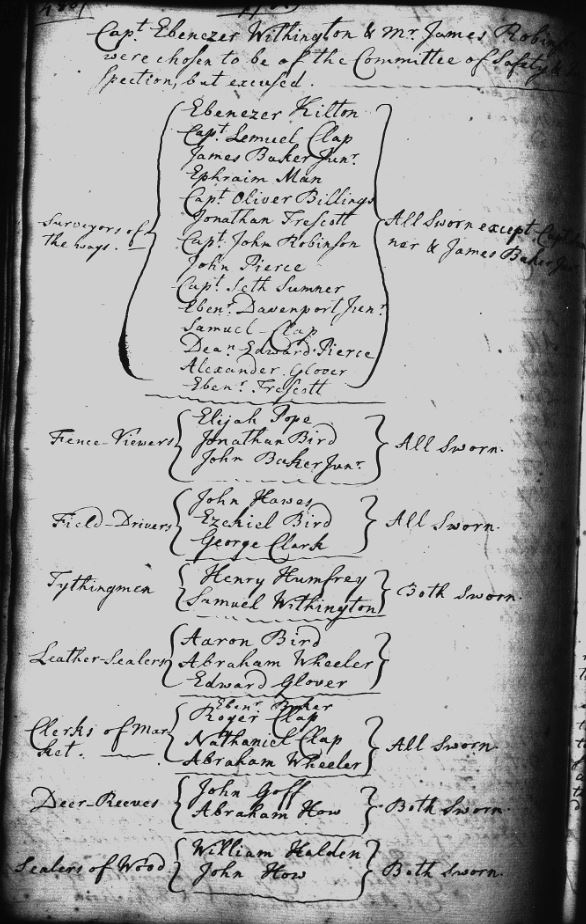 Capt Ebenezer Withington & Mr. James Robinson
were chosen to be of the Committee of Safety &
spection, but excused.
Surveyors of
the ways.
Ebenezer Kilton
Capt Lemuel Clap
James Baker Junr.
Ephraim Man
Capt Oliver Billings
Jonathan Trescott
Capt. John Robinson
John Pierce
Capt. Seth Sumner
Ebenr. Davenport Junr.
Samuel Clap
Dean. Edward Pierce
Alexander Glover
Ebenr. Trescott
All Sworn except Capt
ner & James Baker Junr
Fence-Viewers
Elijah Pope
Jonathan Bird
John Baker Junr.
All Sworn.
Field-Drivers
John Hawes
Ezekiel Bird
George Clark
All Sworn.
Tythingmen
Henry Humfrey
Samuel Withington
Both Sworn.
Leather-Sealers
Aaron Bird
Abraham Wheeler
Edward Glover
Clerks of Mar
ket.
Ebenr. Baker
Roger Clap
Nathaniel Clap
Abraham Wheeler
All Sworn.
Deer-Reeves
John Goff
Abraham How
Both Sworn.
Sealers of Wood
William Halden
John How
Both Sworn.